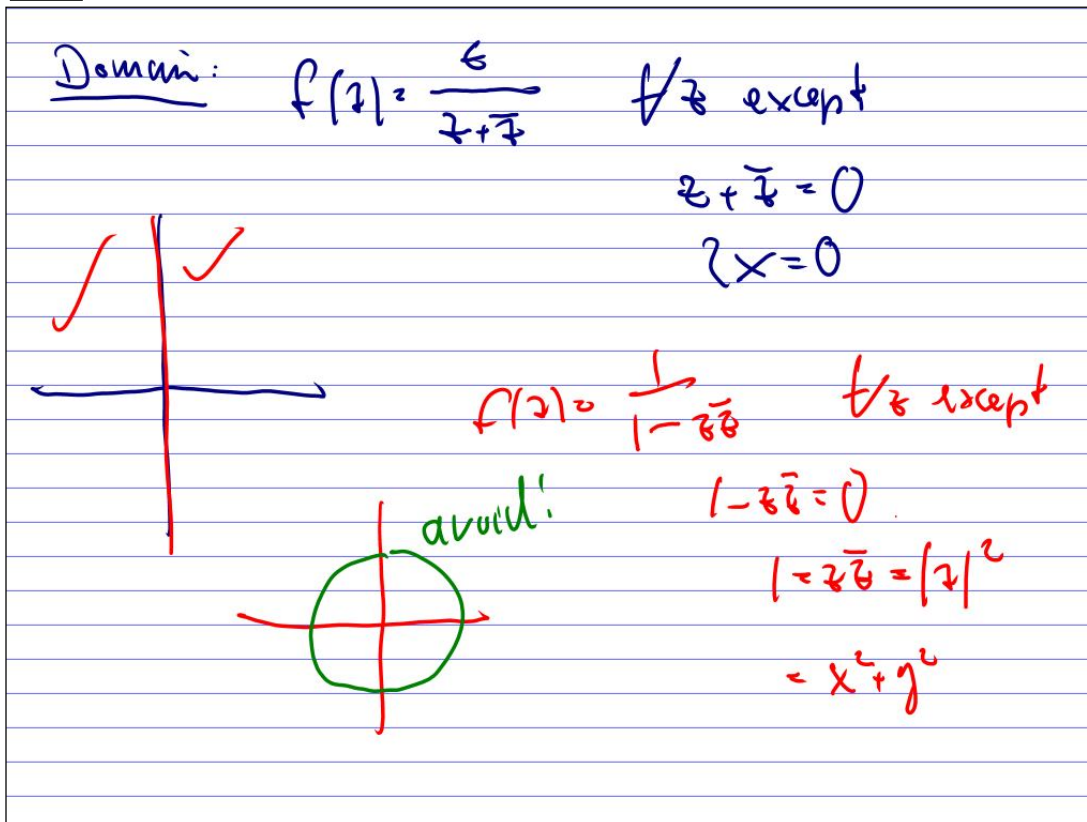 Domain: f(z) = z / (z + z̄) ∀z except
z + z̄ = 0
2x = 0
f(z) = 1 / (1 - z z̄) ∀z except
1 - z z̄ = 0
avoid!
1 = z z̄ = |z|²
= x² + y²